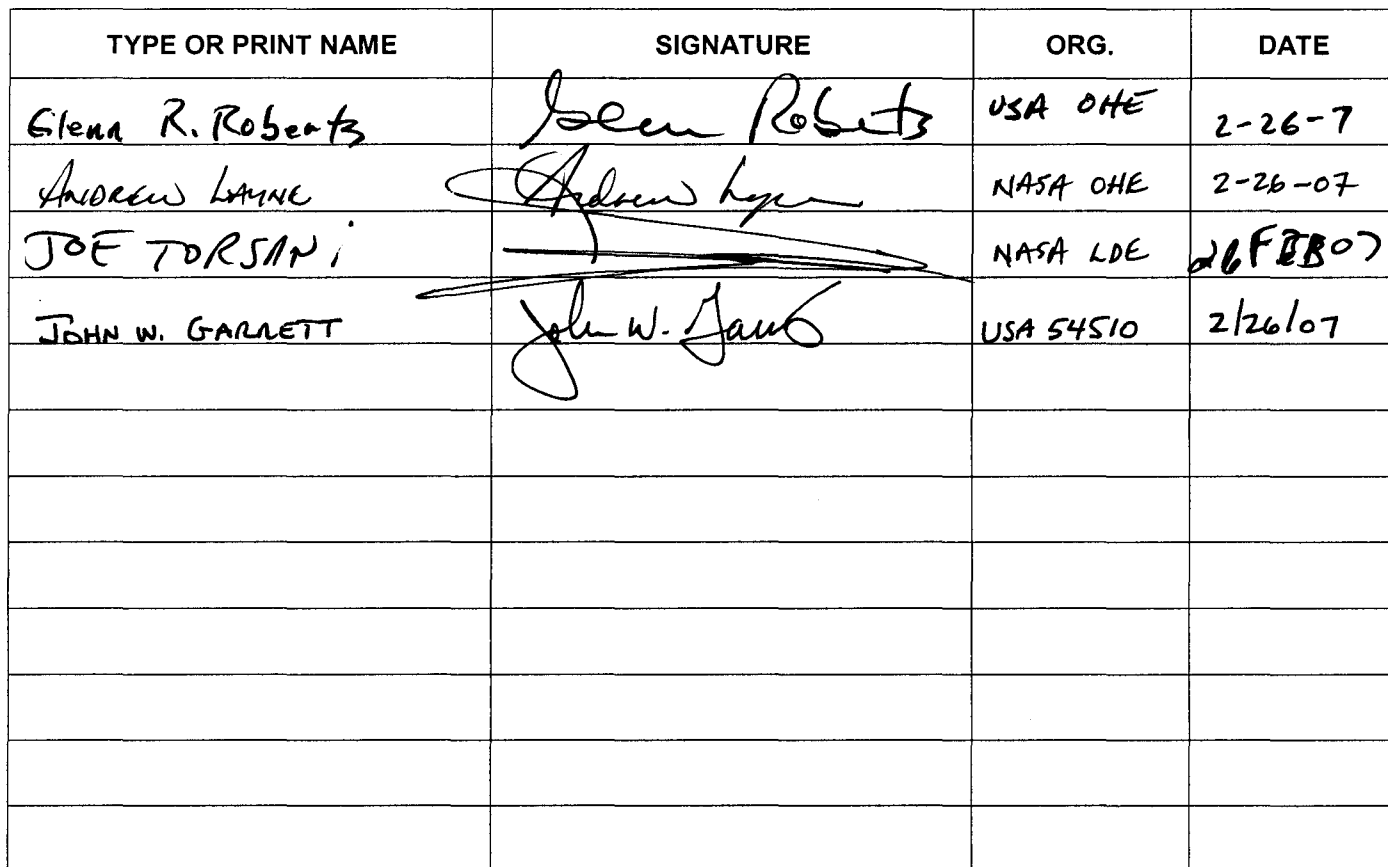 TYPE OR PRINT NAME SIGNATURE ORG. DATE
Glenn R. Roberts Glenn Roberts USA OHE 2-26-7
ANDREW LAYNE Andrew Layne NASA OHE 2-26-07
JOE TORSANI NASA LDE 26FEB07
JOHN W. GARRETT John W. Garrett USA 54510 2/26/07